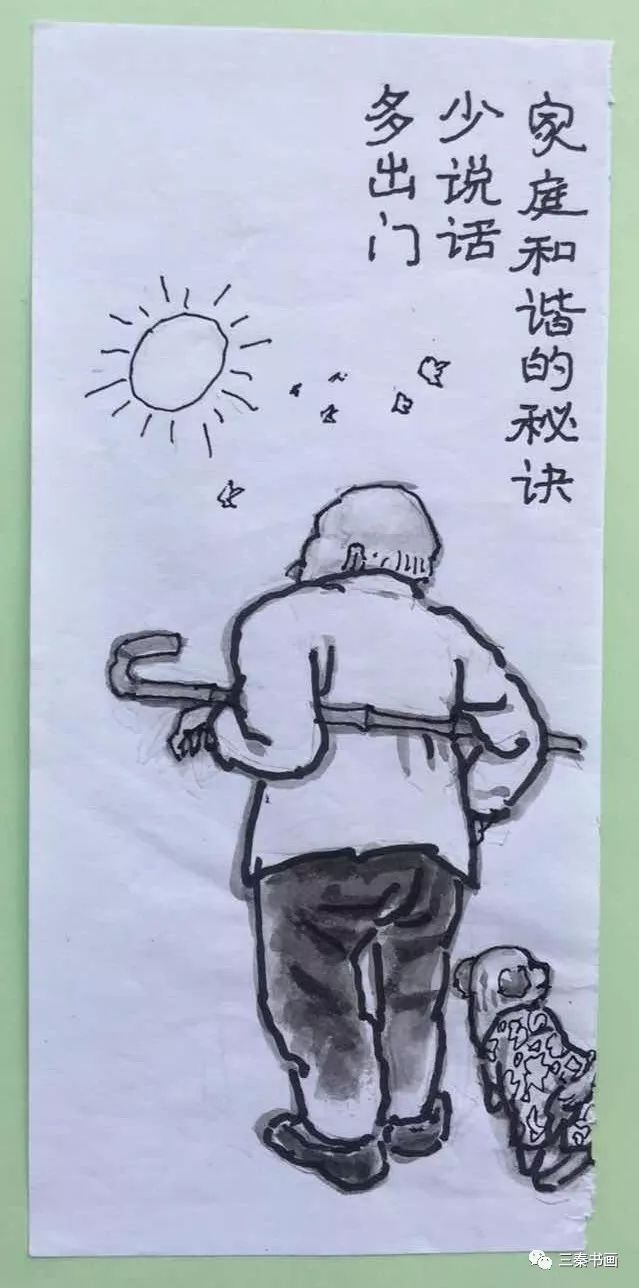 家庭和谐的秘诀
少说话
多出门
三秦书画